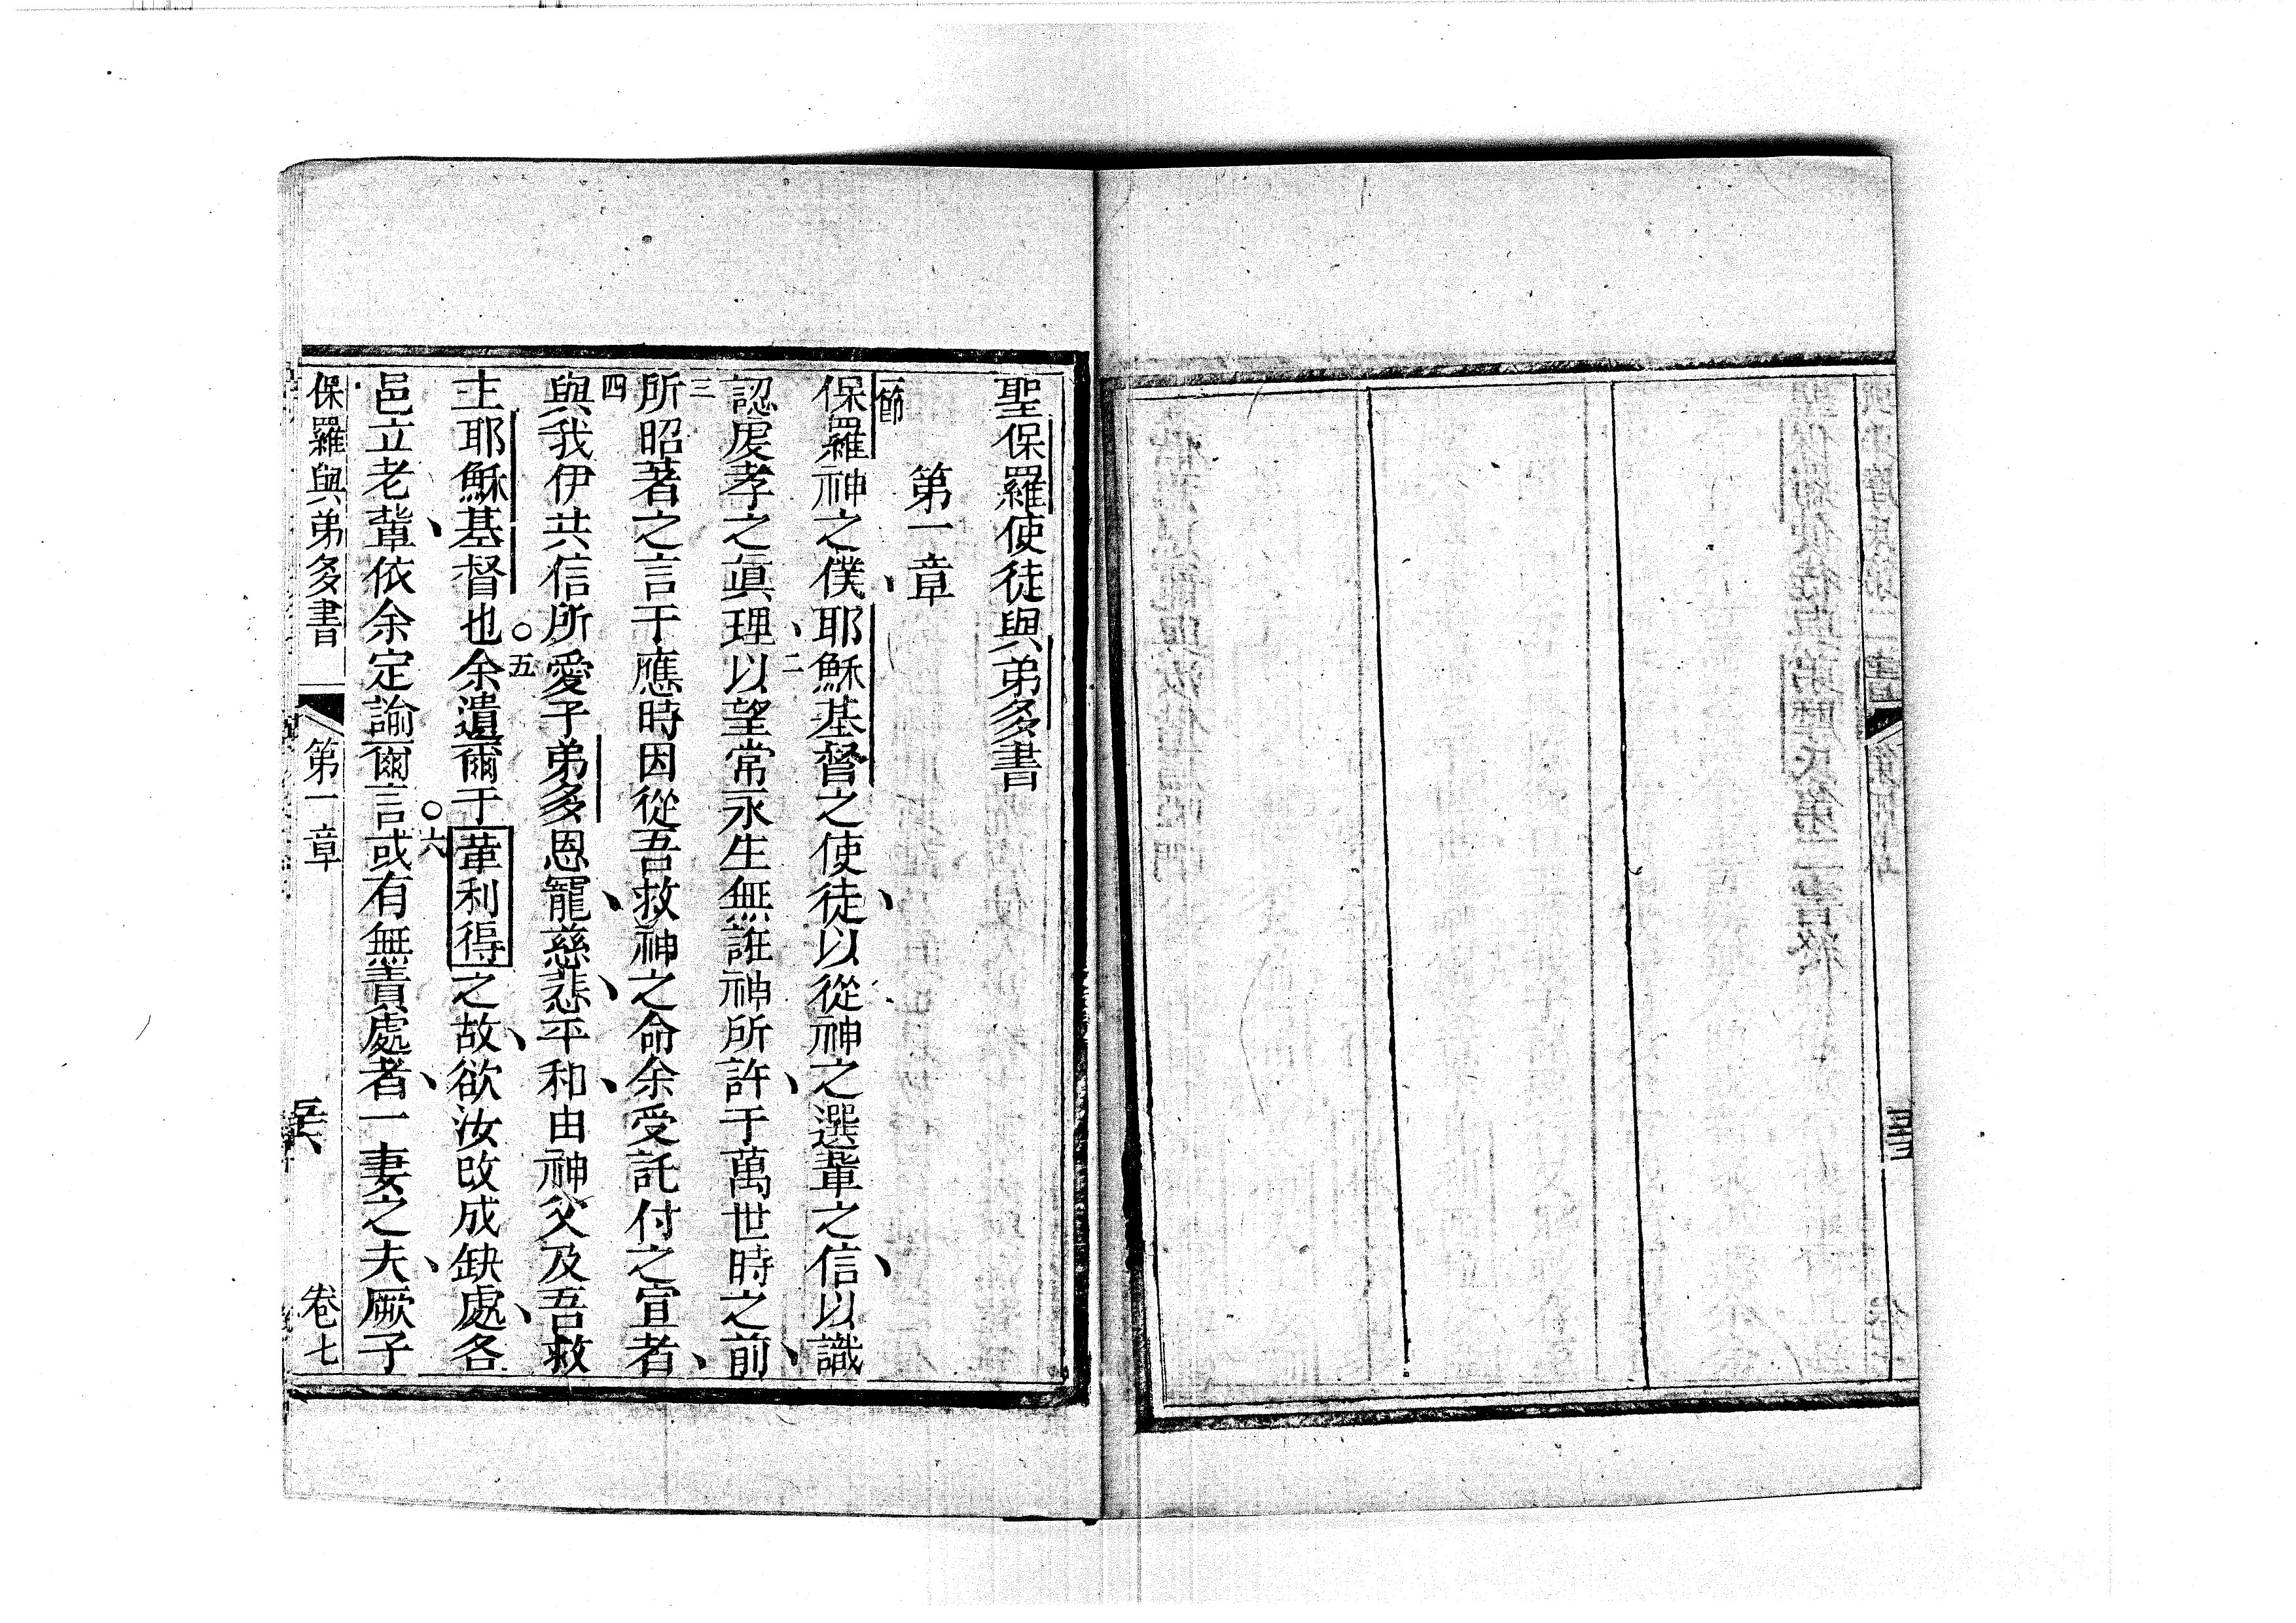 聖保羅使徒與弟多書
第一章
一節
保羅神之僕、耶穌基督之使徒、以從神之選輩之信、以識
認虔孝之真理、二以望常永生無誑神所許、于萬世時之前、
三所昭著之言于應時因從吾救神之命余受託付之宣者、
四與我伊共信所愛子弟多恩寵、慈悲、平和、由神父及吾救
主耶穌基督也。五余遺爾于革利得之故、欲汝改成缺處、各
邑立老輩、依余定諭爾言。六或有無責處者、一妻之夫、厥子
保羅與弟多書 第一章 卷七